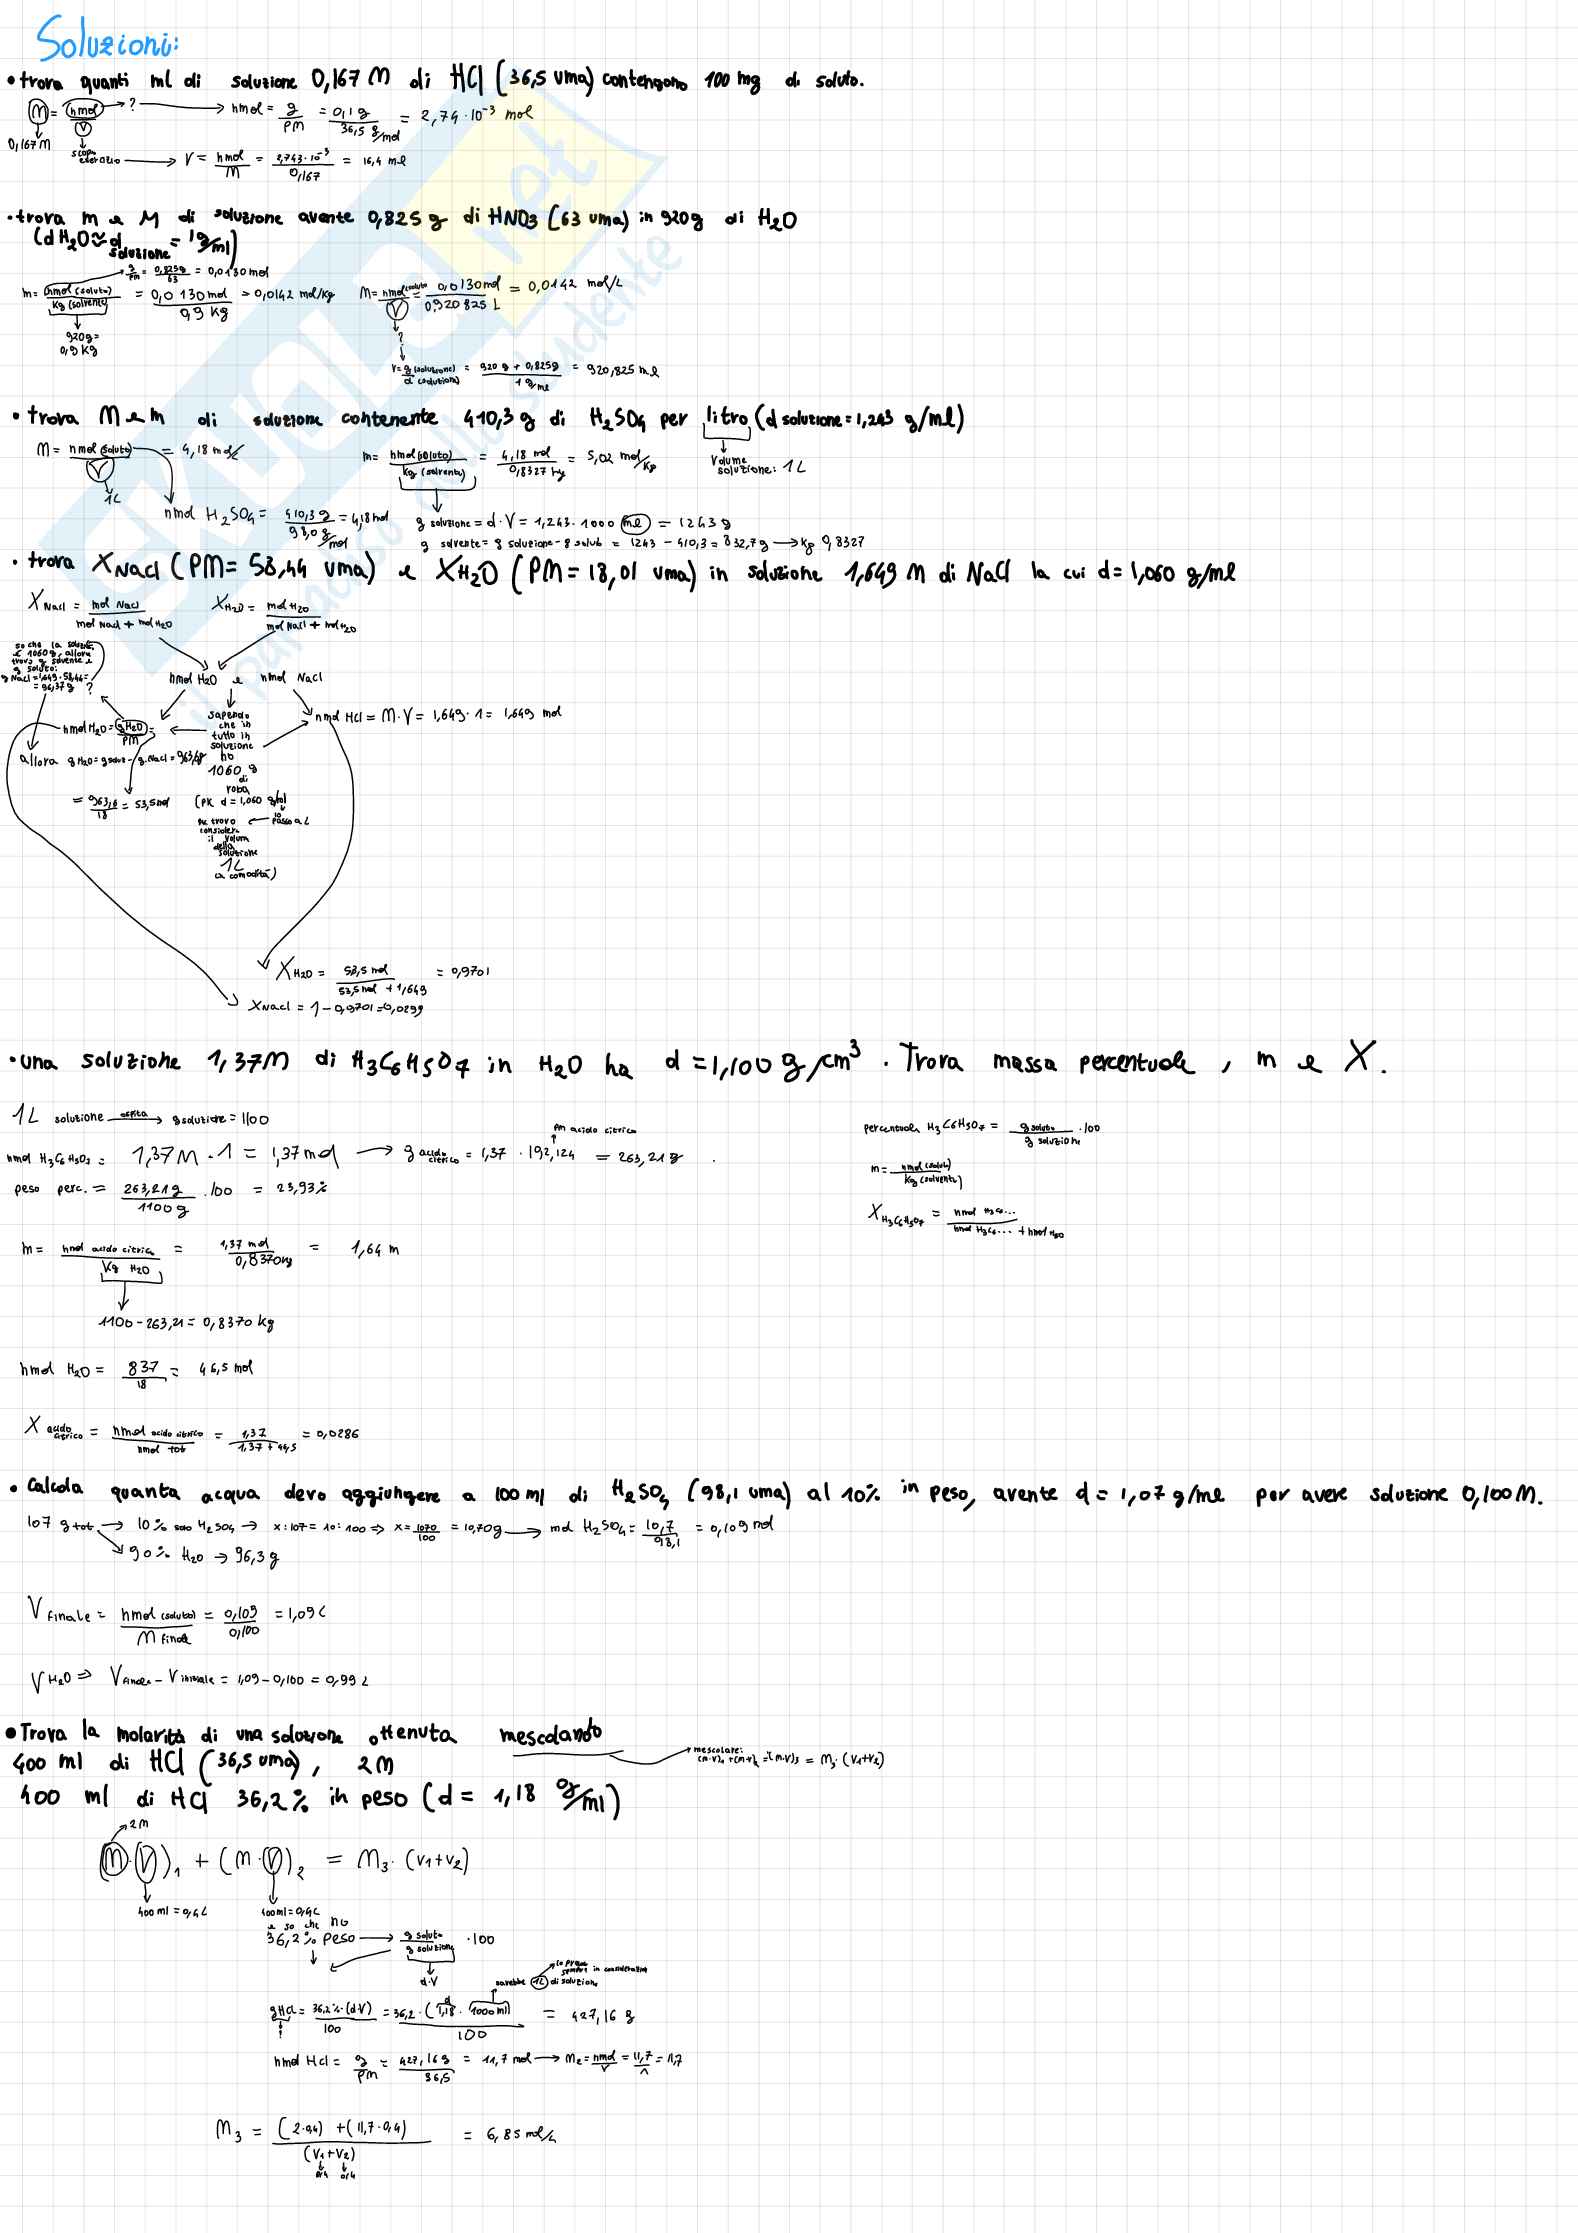 Soluzioni:
• trova quanti ml di soluzione 0,167 M di HCl (36,5 uma) contengono 100 mg di soluto.
M = nmol/V → ? → nmol = g/PM = 0,1 g/36,5 g/mol = 2,74·10⁻³ mol
0,167 M
scopo esercizio → V = nmol/M = 2,743·10⁻³/0,167 = 16,4 ml
• trova m e M di soluzione avente 0,825 g di HNO3 (63 uma) in 920g di H2O
(dH2O ≈ d soluzione = 1g/ml)
g/PM = 0,825g/63 = 0,0130 mol
m = nmol (soluto)/Kg (solvente) = 0,0130 mol/0,9 Kg = 0,0142 mol/kg M = nmol soluto/V = 0,0130 mol/0,920825 L = 0,0142 mol/L
920g = 0,9 Kg
?
V = g (soluzione)/d (soluzione) = 920 g + 0,825g/1 g/ml = 920,825 ml
• trova M e m di soluzione contenente 410,3 g di H2SO4 per litro (d soluzione = 1,243 g/ml)
M = nmol (soluto)/V = 4,18 mol/L m = nmol (soluto)/Kg (solvente) = 4,18 mol/0,8327 kg = 5,02 mol/Kg
volume soluzione: 1L
1L
nmol H2SO4 = 410,3 g/98,0 g/mol = 4,18 mol
g soluzione = d·V = 1,243·1000 ml = 1243 g
g solvente = g soluzione - g soluto = 1243 - 410,3 = 832,7 g → kg 0,8327
• trova XNaCl (PM = 58,44 uma) e XH2O (PM = 18,01 uma) in soluzione 1,649 M di NaCl la cui d = 1,060 g/ml
XNaCl = mol NaCl/mol NaCl + mol H2O XH2O = mol H2O/mol NaCl + mol H2O
so che la soluz. è 1060 g, allora trovo g solvente e g soluto:
g NaCl = 1,649·58,44 = = 96,37 g ?
nmol H2O e nmol NaCl
nmol H2O = g H2O/PM =
sapendo che in tutto in soluzione ho 1060 g di roba
nmol HCl = M·V = 1,649·1 = 1,649 mol
allora g H2O = g soluz - g NaCl = 963,6g
= 963,6/18 = 53,5 mol
(PK d = 1,060 g/ml
lo passo a L
me trovo considero il volum della soluzione 1L
a comodità)
XH2O = 53,5 mol/53,5 mol + 1,649 = 0,9701
XNaCl = 1 - 0,9701 = 0,0299
• una soluzione 1,37M di H3C6H5O7 in H2O ha d = 1,100 g/cm³. Trova massa percentuale, m e X.
1L soluzione → g soluzione = 1100
nmol H3C6H5O7 = 1,37 M · 1 = 1,37 mol → g acido citrico = 1,37 · 192,124 = 263,21 g
PM acido citrico
peso perc. = 263,21 g/1100 g · 100 = 23,93%
percentuale H3C6H5O7 = g soluto/g soluzione · 100
m = nmol (soluto)/Kg (solvente)
XH3C6H5O7 = nmol H3C6.../nmol H3C6... + nmol H2O
m = nmol acido citrico/Kg H2O = 1,37 mol/0,8370kg = 1,64 m
1100 - 263,21 = 0,8370 kg
nmol H2O = 837/18 = 46,5 mol
X acido citrico = nmol acido citrico/nmol tot = 1,37/1,37 + 46,5 = 0,0286
• Calcola quanta acqua devo aggiungere a 100 ml di H2SO4 (98,1 uma) al 10% in peso, avente d = 1,07 g/ml per avere soluzione 0,100 M.
107 g tot → 10% solo H2SO4 → x:107 = 10:100 ⇒ x = 1070/100 = 10,70g → mol H2SO4 = 10,7/98,1 = 0,109 mol
90% H2O → 96,3 g
V finale = nmol (soluto)/M finale = 0,109/0,100 = 1,09 L
V H2O ⇒ V finale - V iniziale = 1,09 - 0,100 = 0,99 L
• Trova la molarità di una soluzione ottenuta mescolando
mescolare: (M·V)1 + (M·V)2 = (M·V)3 = M3·(V1+V2)
400 ml di HCl (36,5 uma), 2M
400 ml di HCl 36,2% in peso (d = 1,18 g/ml)
2M
(M·V)1 + (M·V)2 = M3·(V1+V2)
400 ml = 0,4 L 400 ml = 0,4 L
e so che ho
36,2% peso → g soluto/g soluzione · 100
d·V
lo prendo sempre in considerazione
sarebbe 1L di soluzione
gHCl = 36,2%·(d·V)/100 = 36,2·(1,18·1000 ml)/100 = 427,16 g
nmol HCl = g/PM = 427,16g/36,5 = 11,7 mol → M2 = nmol/V = 11,7/1 = 11,7
M3 = (2·0,4) + (11,7·0,4)/(V1+V2) = 6,85 mol/L
0,4 0,4